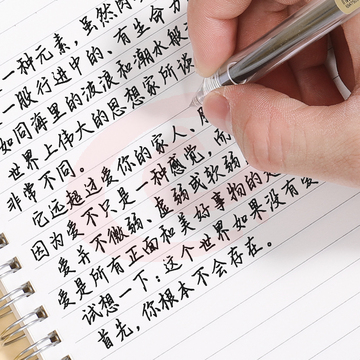 一种元素，虽然肉
一般行进中的、有生命力
如同海里的波浪和潮水般
世界上伟大的思想家所说
非常不同。
它远超过爱你的家人、朋
因为爱不只是一种感觉，而
爱并不微弱、虚弱或软弱
爱是所有正面和美好事物的
试想一下：这个世界如果没有爱
首先，你根本不会存在。